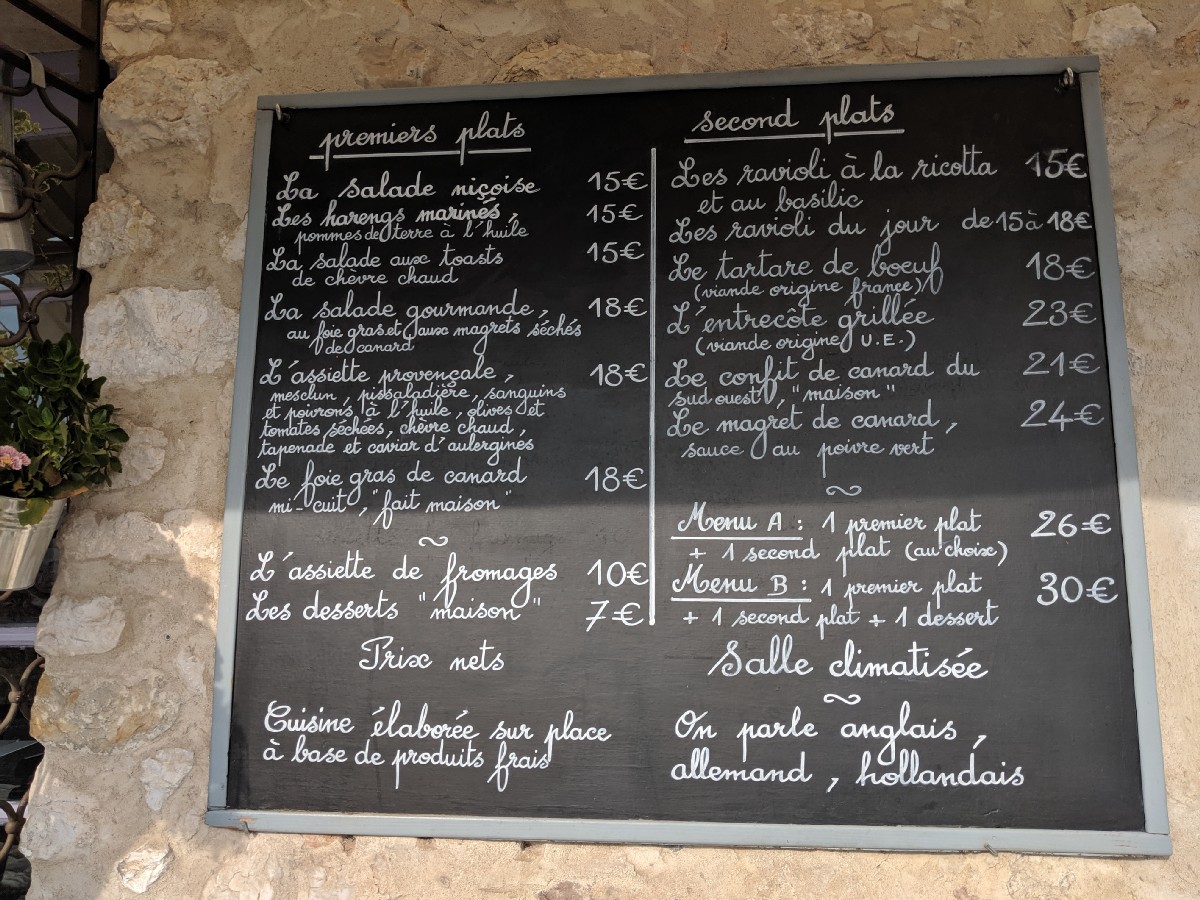 premiers plats
La salade niçoise 15€
Les harengs marinés, 15€
pommes de terre à l'huile
La salade aux toasts 15€
de chèvre chaud
La salade gourmande, 18€
au foie gras et aux magrets séchés
de canard
L'assiette provençale, 18€
mesclun, pissaladière, sanguins
et poivrons à l'huile, olives et
tomates séchées, chèvre chaud,
tapenade et caviar d'aubergines
Le foie gras de canard 18€
mi-cuit, "fait maison"
~
L'assiette de fromages 10€
Les desserts "maison" 7€
Prix nets
Cuisine élaborée sur place
à base de produits frais
second plats
Les ravioli à la ricotta 15€
et au basilic
Les ravioli du jour de 15 à 18€
Le tartare de boeuf 18€
(viande origine france)
L'entrecôte grillée 23€
(viande origine U.E.)
Le confit de canard du 21€
sud ouest, "maison"
Le magret de canard, 24€
sauce au poivre vert
~
Menu A : 1 premier plat 26€
+ 1 second plat (au choix)
Menu B : 1 premier plat 30€
+ 1 second plat + 1 dessert
Salle climatisée
~
On parle anglais,
allemand, hollandais